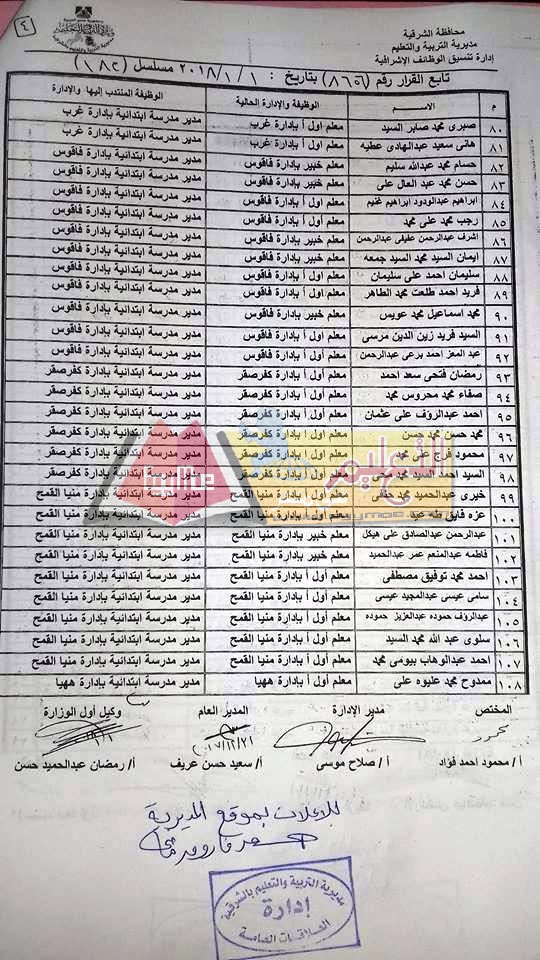 ٤
محافظة الشرقية
مديرية التربية والتعليم
إدارة تنسيق الوظائف الإشرافية
تابع القرار رقم (٨٦٥٦) بتاريخ : ٢٠١٨/١/١ مسلسل (١٨٢)
م الاسم الوظيفة والإدارة الحالية الوظيفة المنتدب إليها والإدارة
٨٠ صبرى محمد صابر السيد معلم اول أ بإدارة غرب مدير مدرسة ابتدائية بإدارة غرب
٨١ هانى سعيد عبدالهادى عطيه معلم أول أ بإدارة غرب مدير مدرسة ابتدائية بإدارة غرب
٨٢ حسام محمد عبدالله سليم معلم خبير بإدارة فاقوس مدير مدرسة ابتدائية بإدارة فاقوس
٨٣ حسن محمد عبد العال على معلم خبير بإدارة فاقوس مدير مدرسة ابتدائية بإدارة فاقوس
٨٤ ابراهيم عبدالودود ابراهيم غنيم معلم أول أ بإدارة فاقوس مدير مدرسة ابتدائية بإدارة فاقوس
٨٥ رجب محمد على محمد معلم أول أ بإدارة فاقوس مدير مدرسة ابتدائية بإدارة فاقوس
٨٦ اشرف عبدالرحمن عفيفى عبدالرحمن معلم خبير بإدارة فاقوس مدير مدرسة ابتدائية بإدارة فاقوس
٨٧ ايمان السيد محمد السيد جمعه معلم خبير بإدارة فاقوس مدير مدرسة ابتدائية بإدارة فاقوس
٨٨ سليمان احمد على سليمان معلم أول أ بإدارة فاقوس مدير مدرسة ابتدائية بإدارة فاقوس
٨٩ فريد احمد طلعت محمد الطاهر معلم أول أ بإدارة فاقوس مدير مدرسة ابتدائية بإدارة فاقوس
٩٠ محمد اسماعيل محمد عويس معلم خبير بإدارة فاقوس مدير مدرسة ابتدائية بإدارة فاقوس
٩١ السيد فريد زين الدين مرسى معلم أول أ بإدارة فاقوس مدير مدرسة ابتدائية بإدارة فاقوس
٩٢ عبد المعز احمد برعى عبدالرحمن معلم أول أ بإدارة فاقوس مدير مدرسة ابتدائية بإدارة فاقوس
٩٣ رمضان فتحى سعد احمد معلم أول أ بإدارة كفرصقر مدير مدرسة ابتدائية بإدارة كفرصقر
٩٤ صفاء محمد محروس محمد معلم أول أ بإدارة كفرصقر مدير مدرسة ابتدائية بإدارة كفرصقر
٩٥ احمد عبدالرؤف على عثمان معلم أول أ بإدارة كفرصقر مدير مدرسة ابتدائية بإدارة كفرصقر
٩٦ محمد حسن محمد حسن معلم أول أ بإدارة كفرصقر مدير مدرسة ابتدائية بإدارة كفرصقر
٩٧ محمود فرج على محمد معلم أول أ بإدارة كفرصقر مدير مدرسة ابتدائية بإدارة كفرصقر
٩٨ السيد احمد السيد محمد معلم أول أ بإدارة كفرصقر مدير مدرسة ابتدائية بإدارة كفرصقر
٩٩ خيرى عبدالحميد محمد حنفى معلم أول أ بإدارة منيا القمح مدير مدرسة ابتدائية بإدارة منيا القمح
١٠٠ عزه فايق طه عبد معلم أول أ بإدارة منيا القمح مدير مدرسة ابتدائية بإدارة منيا القمح
١٠١ عبدالرحمن عبدالصادق على هيكل معلم خبير بإدارة منيا القمح مدير مدرسة ابتدائية بإدارة منيا القمح
١٠٢ فاطمه عبدالمنعم عمر عبدالحميد معلم خبير بإدارة منيا القمح مدير مدرسة ابتدائية بإدارة منيا القمح
١٠٣ احمد محمد توفيق مصطفى معلم أول أ بإدارة منيا القمح مدير مدرسة ابتدائية بإدارة منيا القمح
١٠٤ سامى عيسى عبدالمجيد عيسى معلم أول أ بإدارة منيا القمح مدير مدرسة ابتدائية بإدارة منيا القمح
١٠٥ عبدالرؤف حموده عبدالعزيز حموده معلم أول أ بإدارة منيا القمح مدير مدرسة ابتدائية بإدارة منيا القمح
١٠٦ سلوى عبد الله محمد السيد معلم أول أ بإدارة منيا القمح مدير مدرسة ابتدائية بإدارة منيا القمح
١٠٧ احمد عبدالوهاب بيومى محمد معلم أول أ بإدارة منيا القمح مدير مدرسة ابتدائية بإدارة منيا القمح
١٠٨ ممدوح محمد عليوه على معلم أول أ بإدارة ههيا مدير مدرسة ابتدائية بإدارة ههيا
المختص مدير الإدارة المدير العام وكيل أول الوزارة
٢٠١٧/١٢/٣١
أ/ محمود احمد فؤاد أ / صلاح موسى أ/ سعيد حسن عريف أ/ رمضان عبدالحميد حسن
للإعلان بموقع المديرية
مديرية التربية والتعليم بالشرقية
إدارة
العلاقات العامة